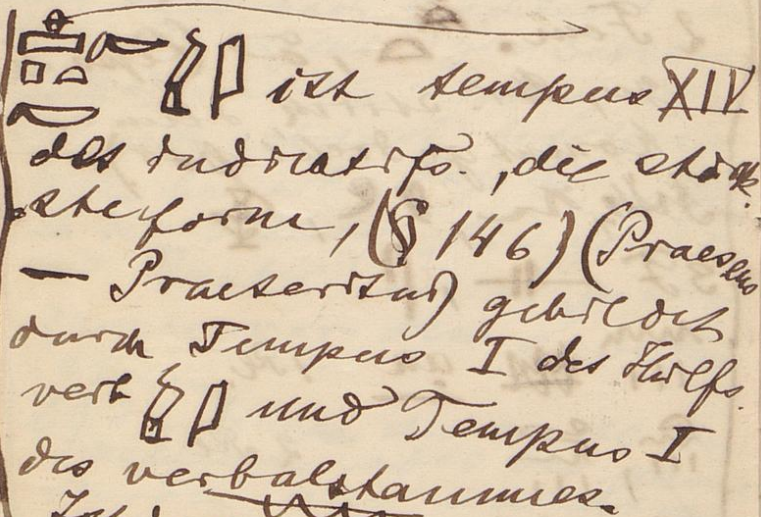 ist tempus XIV
des indicatifs., die stärk-
ste form, (§ 146) (Praesens
— Praeteritus) gebildet
durch Tempus I des Hülfs-
verb und Tempus I
des verbalstammes.